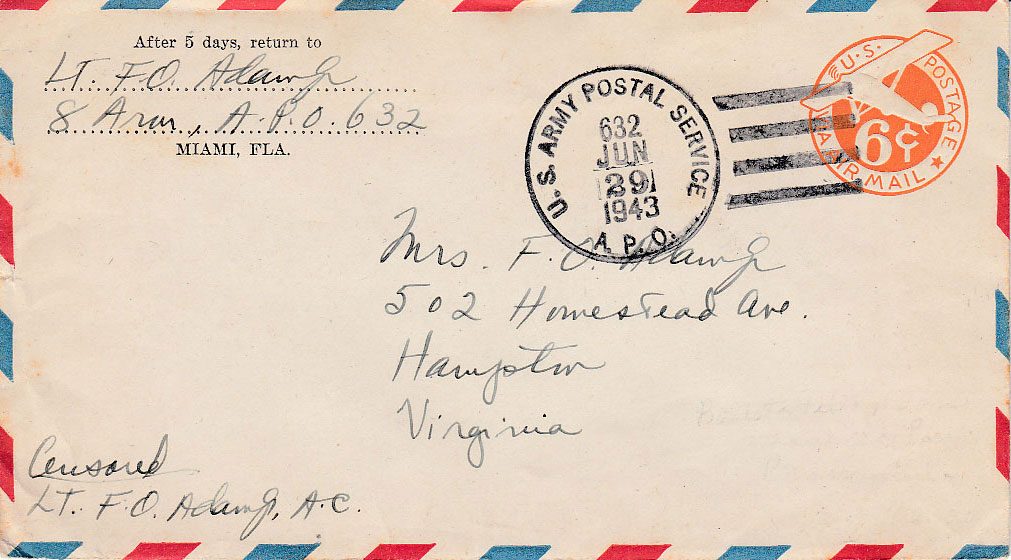 After 5 days, return to
Lt. F. O. Adams Jr
8 Arm., A.P.O. 632
MIAMI, FLA.
U.S. ARMY POSTAL SERVICE
632
JUN
29
1943
A.P.O.
U.S. POSTAGE
6¢
VIA AIR MAIL
Mrs. F. O. Adams Jr
502 Homestead Ave.
Hampton
Virginia
Censored
Lt. F. O. Adams Jr, A.C.